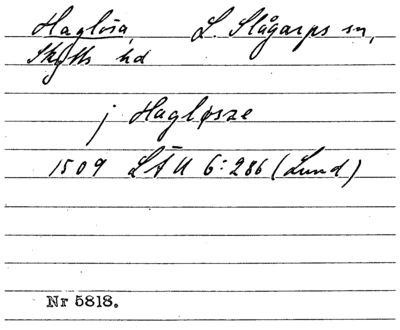 Haglösa, L. Slågarps sn,
Skytts hd
j Hagløsze
1509 LÄU 6:286 (Lund)
Nr 5818.